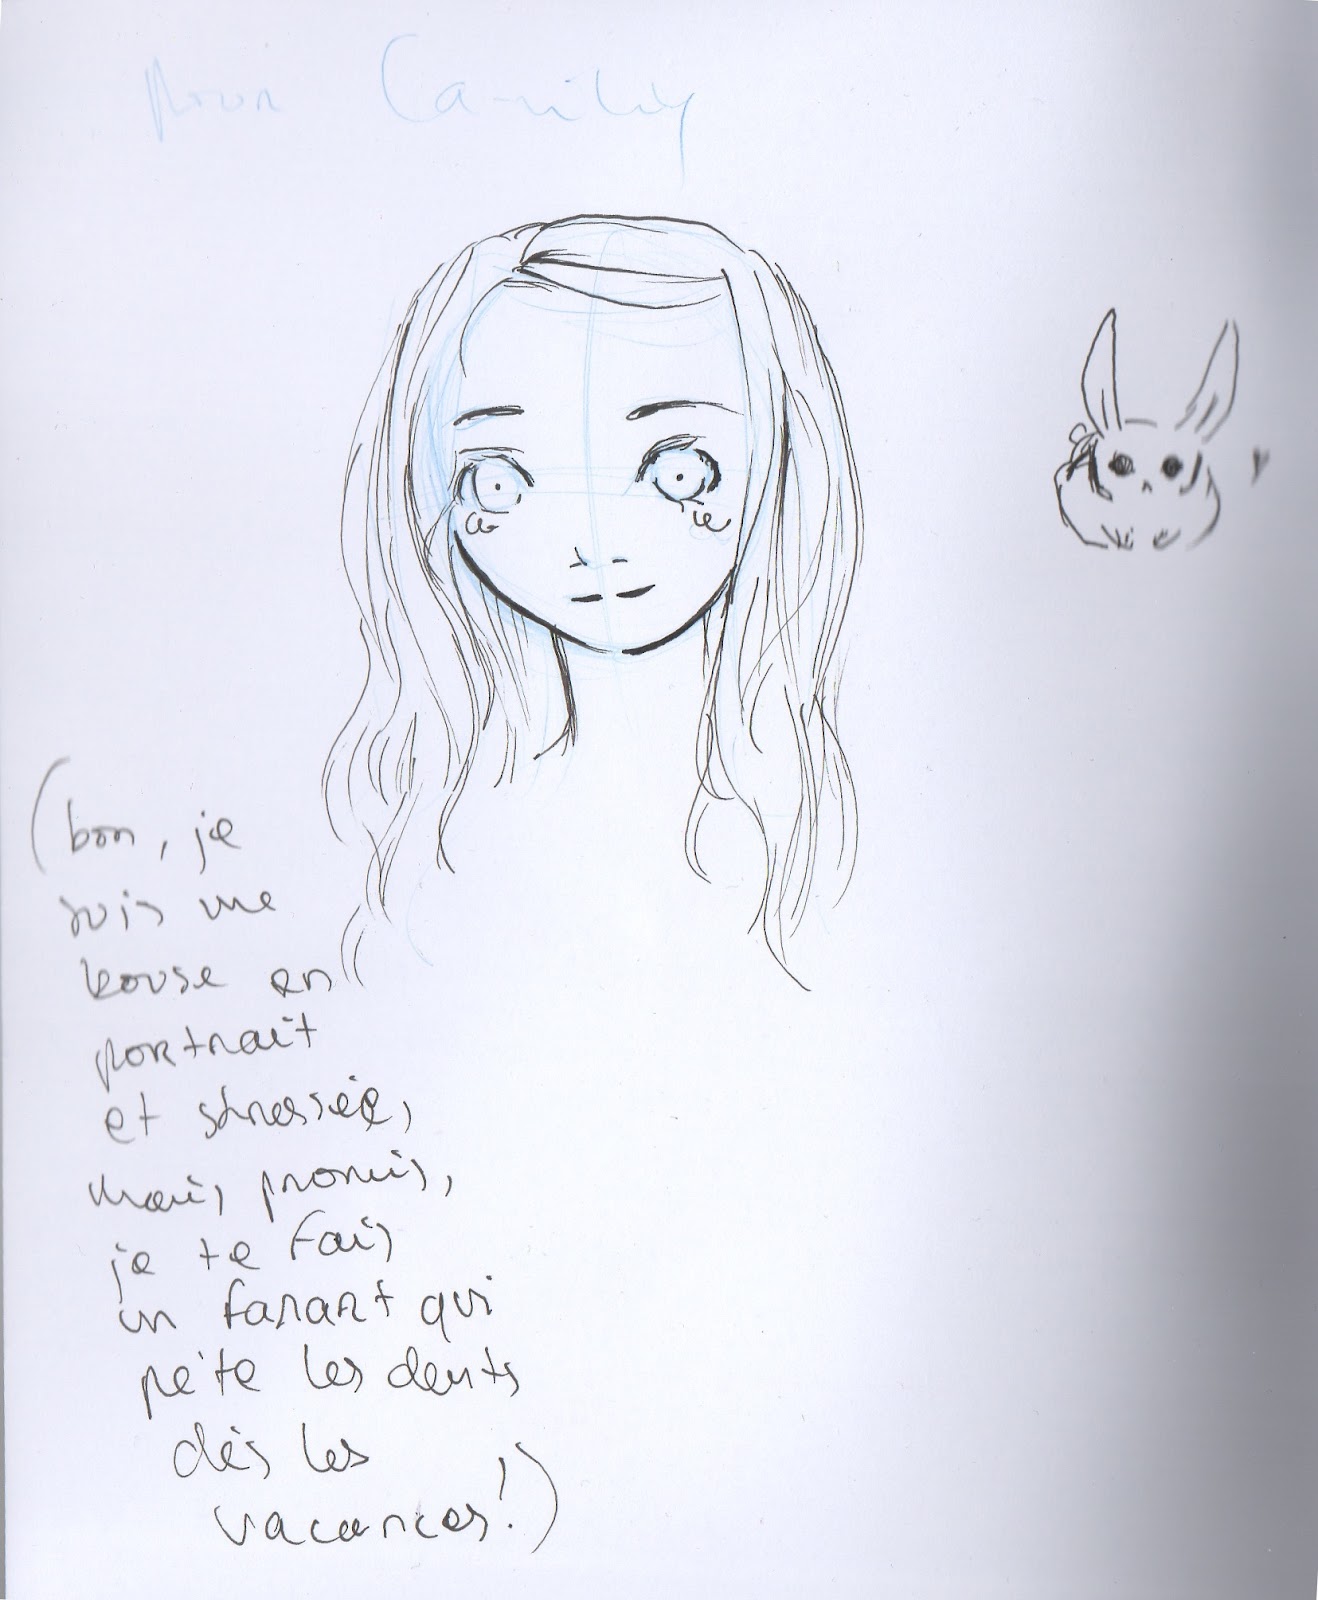 pour Camily
(bon, je
suis une
bouse en
portrait
et stressée,
mais, promis,
je te fais
un fanart qui
pète les dents
dès les
vacances!)